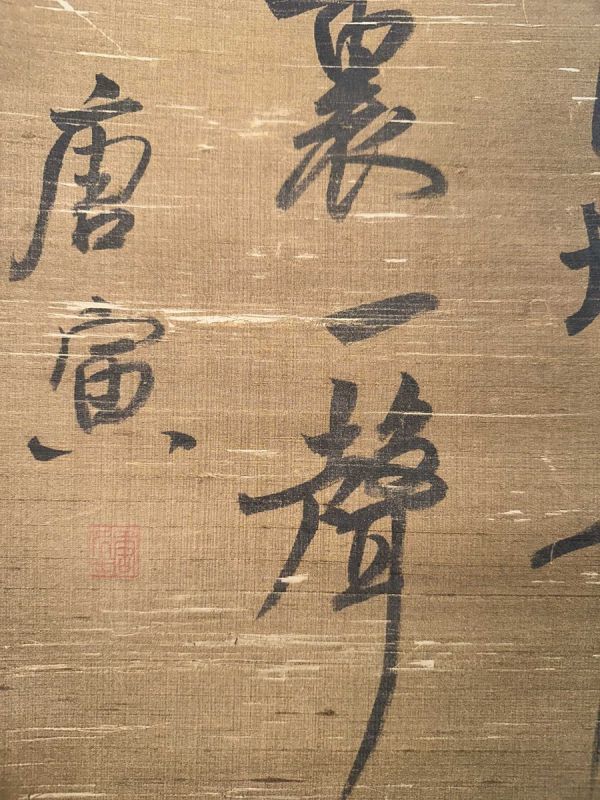 裏一聲
唐寅